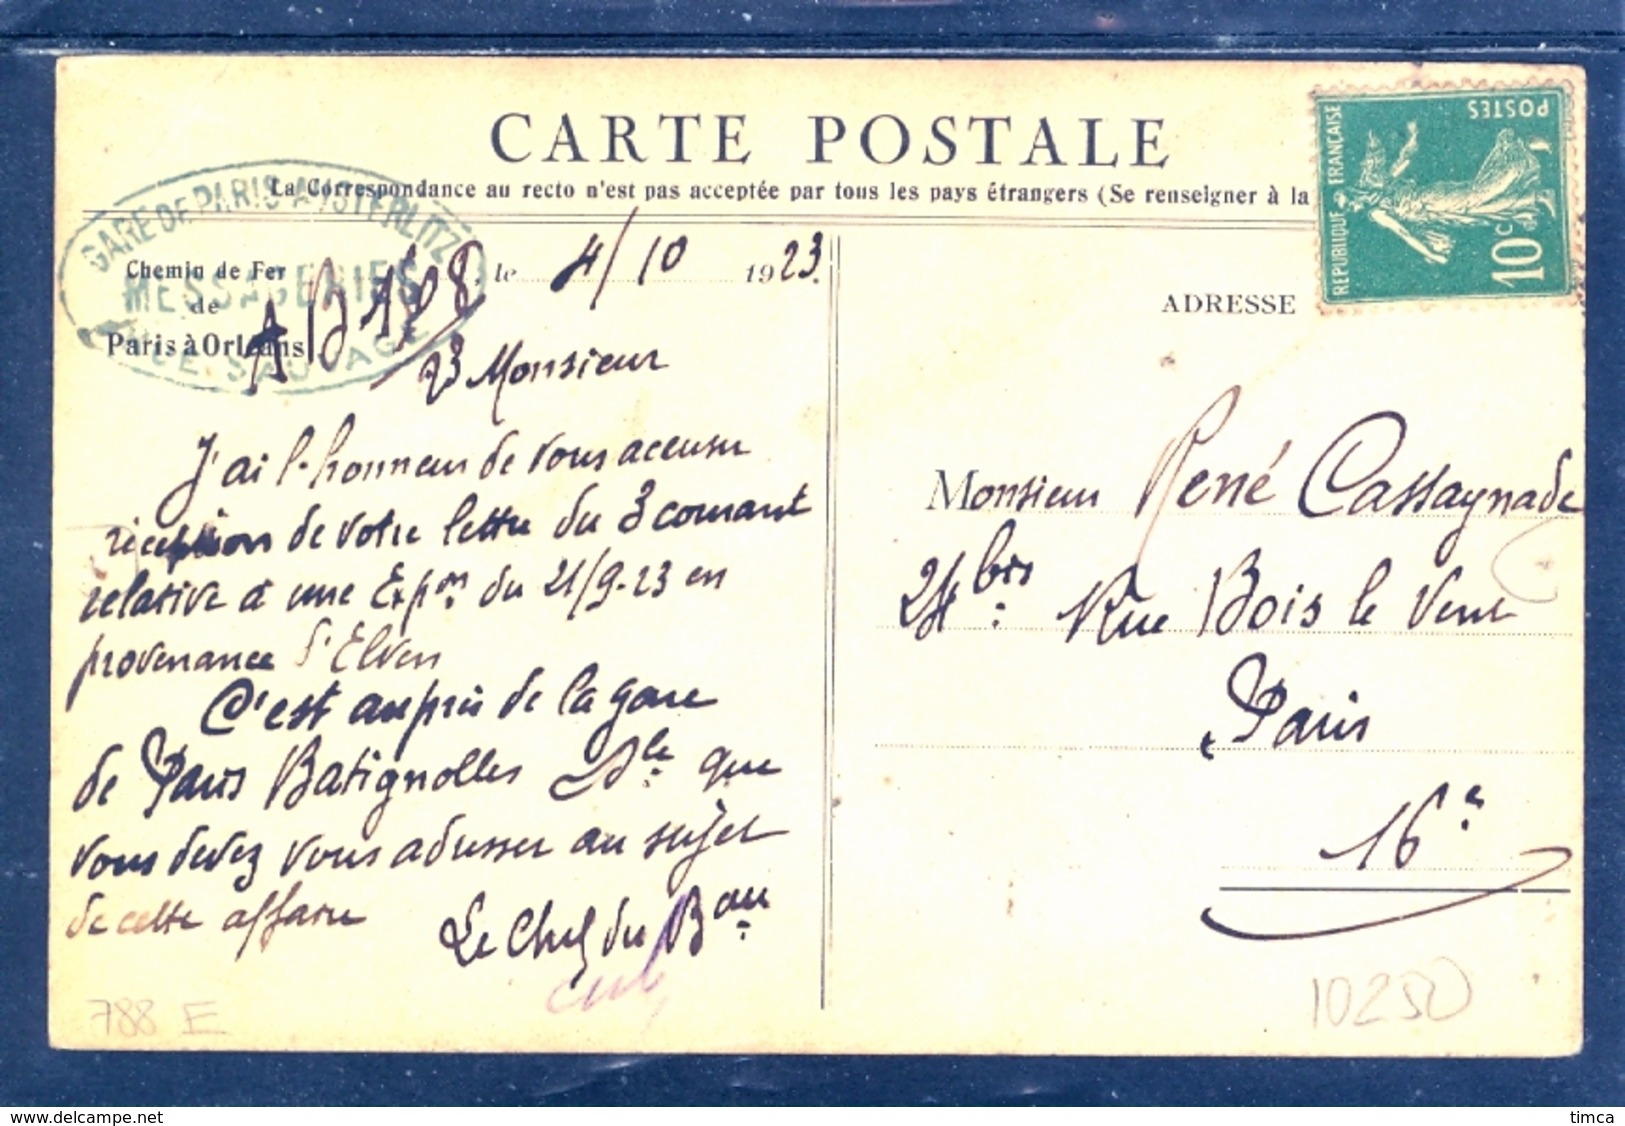 CARTE POSTALE
La Correspondance au recto n'est pas acceptée par tous les pays étrangers (Se renseigner à la
REPUBLIQUE FRANÇAISE
POSTES
10c
GARE DE PARIS-AUSTERLITZ
MESSAGERIES
SAUVAGE
Chemin de Fer
de
Paris à Orléans
le 4/10 1923.
23 Monsieur
J'ai l'honneur de vous accuser
réception de votre lettre du 3 courant
relative à une Expon du 21/9-23 en
provenance d'Elven
C'est auprès de la gare
de Paris Batignolles que
vous devez vous adresser au sujet
de cette affaire
Le Chef du Bau
788 E
ADRESSE
Monsieur René Cassagnade
24 bis Rue Bois le Vent
Paris
16e
10250
www.delcampe.net
timca